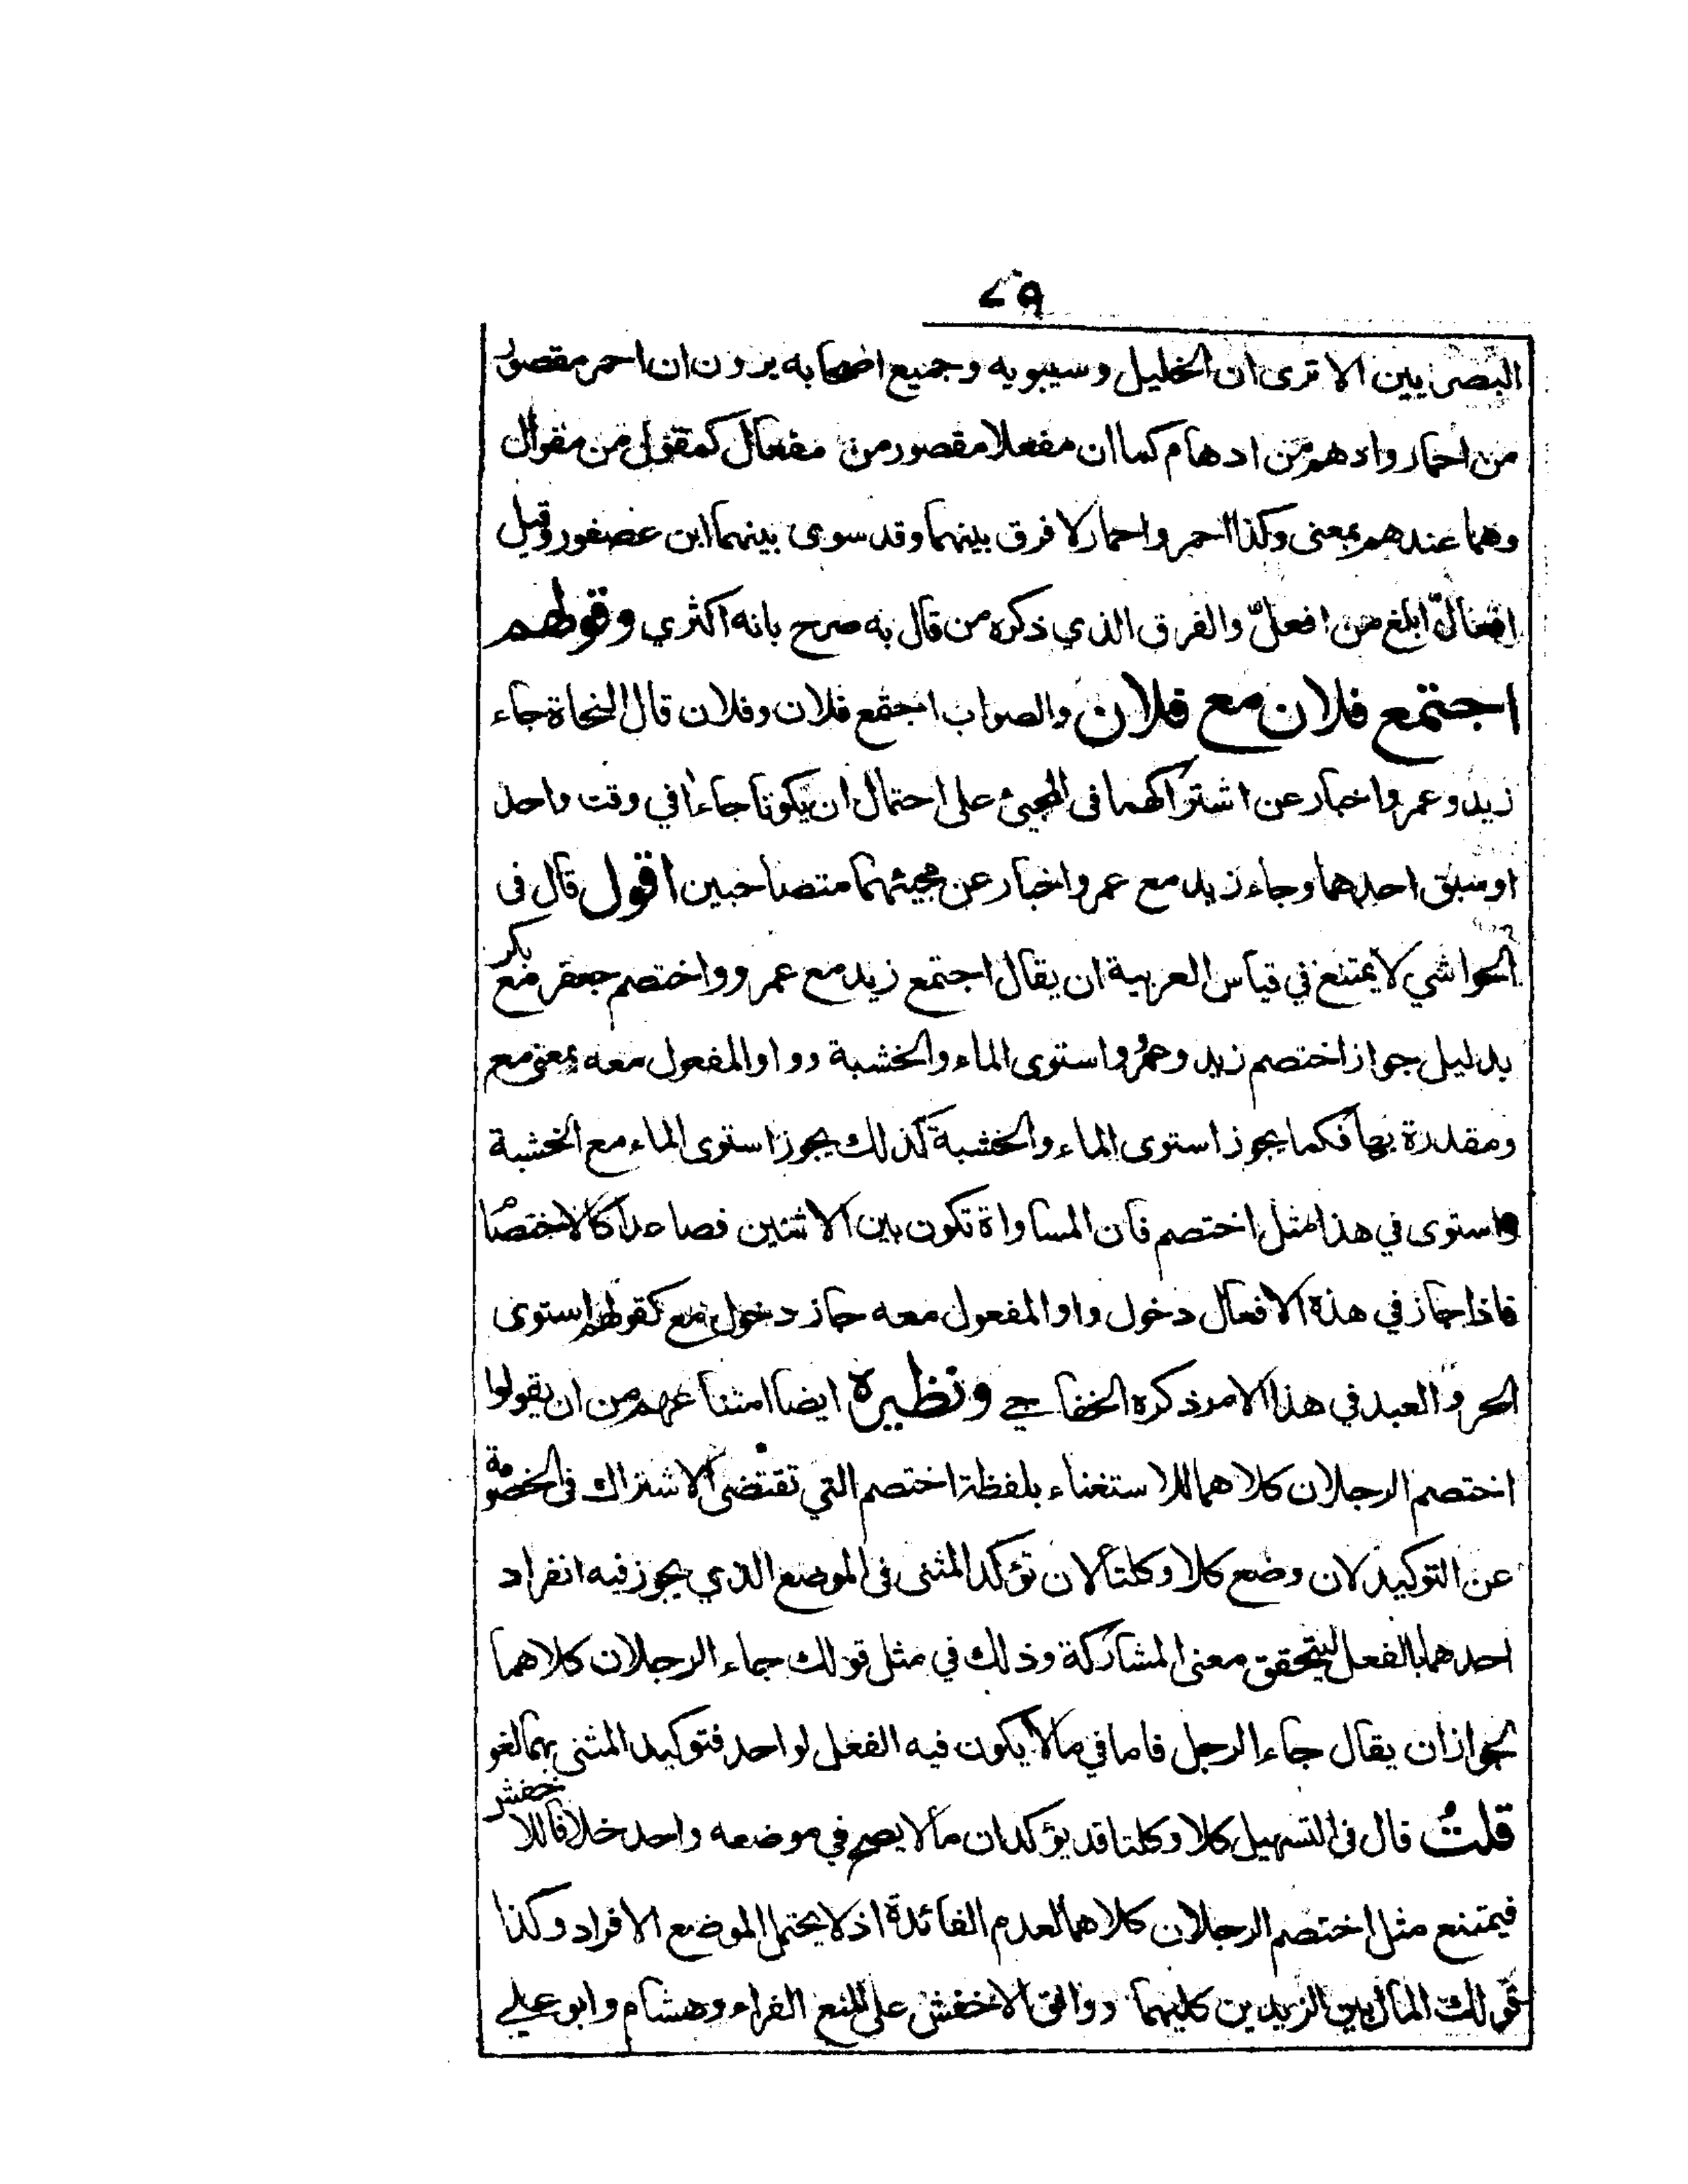 ٤٩
البصريين الا ترى ان الخليل وسيبويه وجميع اصحابه يرون ان احمر مقصور
من احمار وادهم من ادهام كما ان مفعلا مقصور من مفعال كمقول من مقوال
وهما عندهم بمعنى وكذا احمر واحمار لا فرق بينهما وقد سوى بينهما ابن عصفور وقيل
افعالّ ابلغ من افعلّ والفرق الذي ذكره من قال به صرح بانه اكثري وقولهم
اجتمع فلان مع فلان والصواب اجتمع فلان وفلان قال النحاة جاء
زيد وعمرو اخبار عن اشتراكهما في المجيئ على احتمال ان يكونا جاءا في وقت واحد
او سبق احدهما وجاء زيد مع عمرو اخبار عن مجيئهما متصاحبين اقول قال في
الحواشي لا يمتنع في قياس العربية ان يقال اجتمع زيد مع عمرو واختصم جعفر مع بكر
بدليل جواز اختصم زيد وعمرو واستوى الماء والخشبة وواو المفعول معه بمعنى مع
ومقدرة بها فكما يجوز استوى الماء والخشبة كذلك يجوز استوى الماء مع الخشبة
واستوى في هذا مثل اختصم فان المساواة تكون بين الاثنين فصاعدا كالاختصام
فاذا جاز في هذه الافعال دخول واو المفعول معه جاز دخول مع كقولهم استوى
الحر والعبد في هذا الامر ذكره الخفاجي ونظيره ايضا امتناعهم من ان يقولوا
اختصم الرجلان كلاهما للاستغناء بلفظة اختصم التي تقتضى الاشتراك في الخصومة
عن التوكيد لان وضع كلا وكلتا لان تؤكد المثنى في الموضع الذي يجوز فيه انفراد
احدهما بالفعل ليتحقق معنى المشاركة وذلك في مثل قولك جاء الرجلان كلاهما
لجواز ان يقال جاء الرجل فاما في ما لا يكون فيه الفعل لواحد فتوكيد المثنى بهما لغو
قلتُ قال في التسهيل كلا وكلتا قد يؤكدان ما لا يصح في موضعه واحد خلافا للاخفش
فيمتنع مثل اختصم الرجلان كلاهما لعدم الفائدة اذ لا يحتمل الموضع الافراد وكذا
قولك المال بين الزيدين كليهما ووافق الاخفش على المنع الفراء وهشام وابو علي